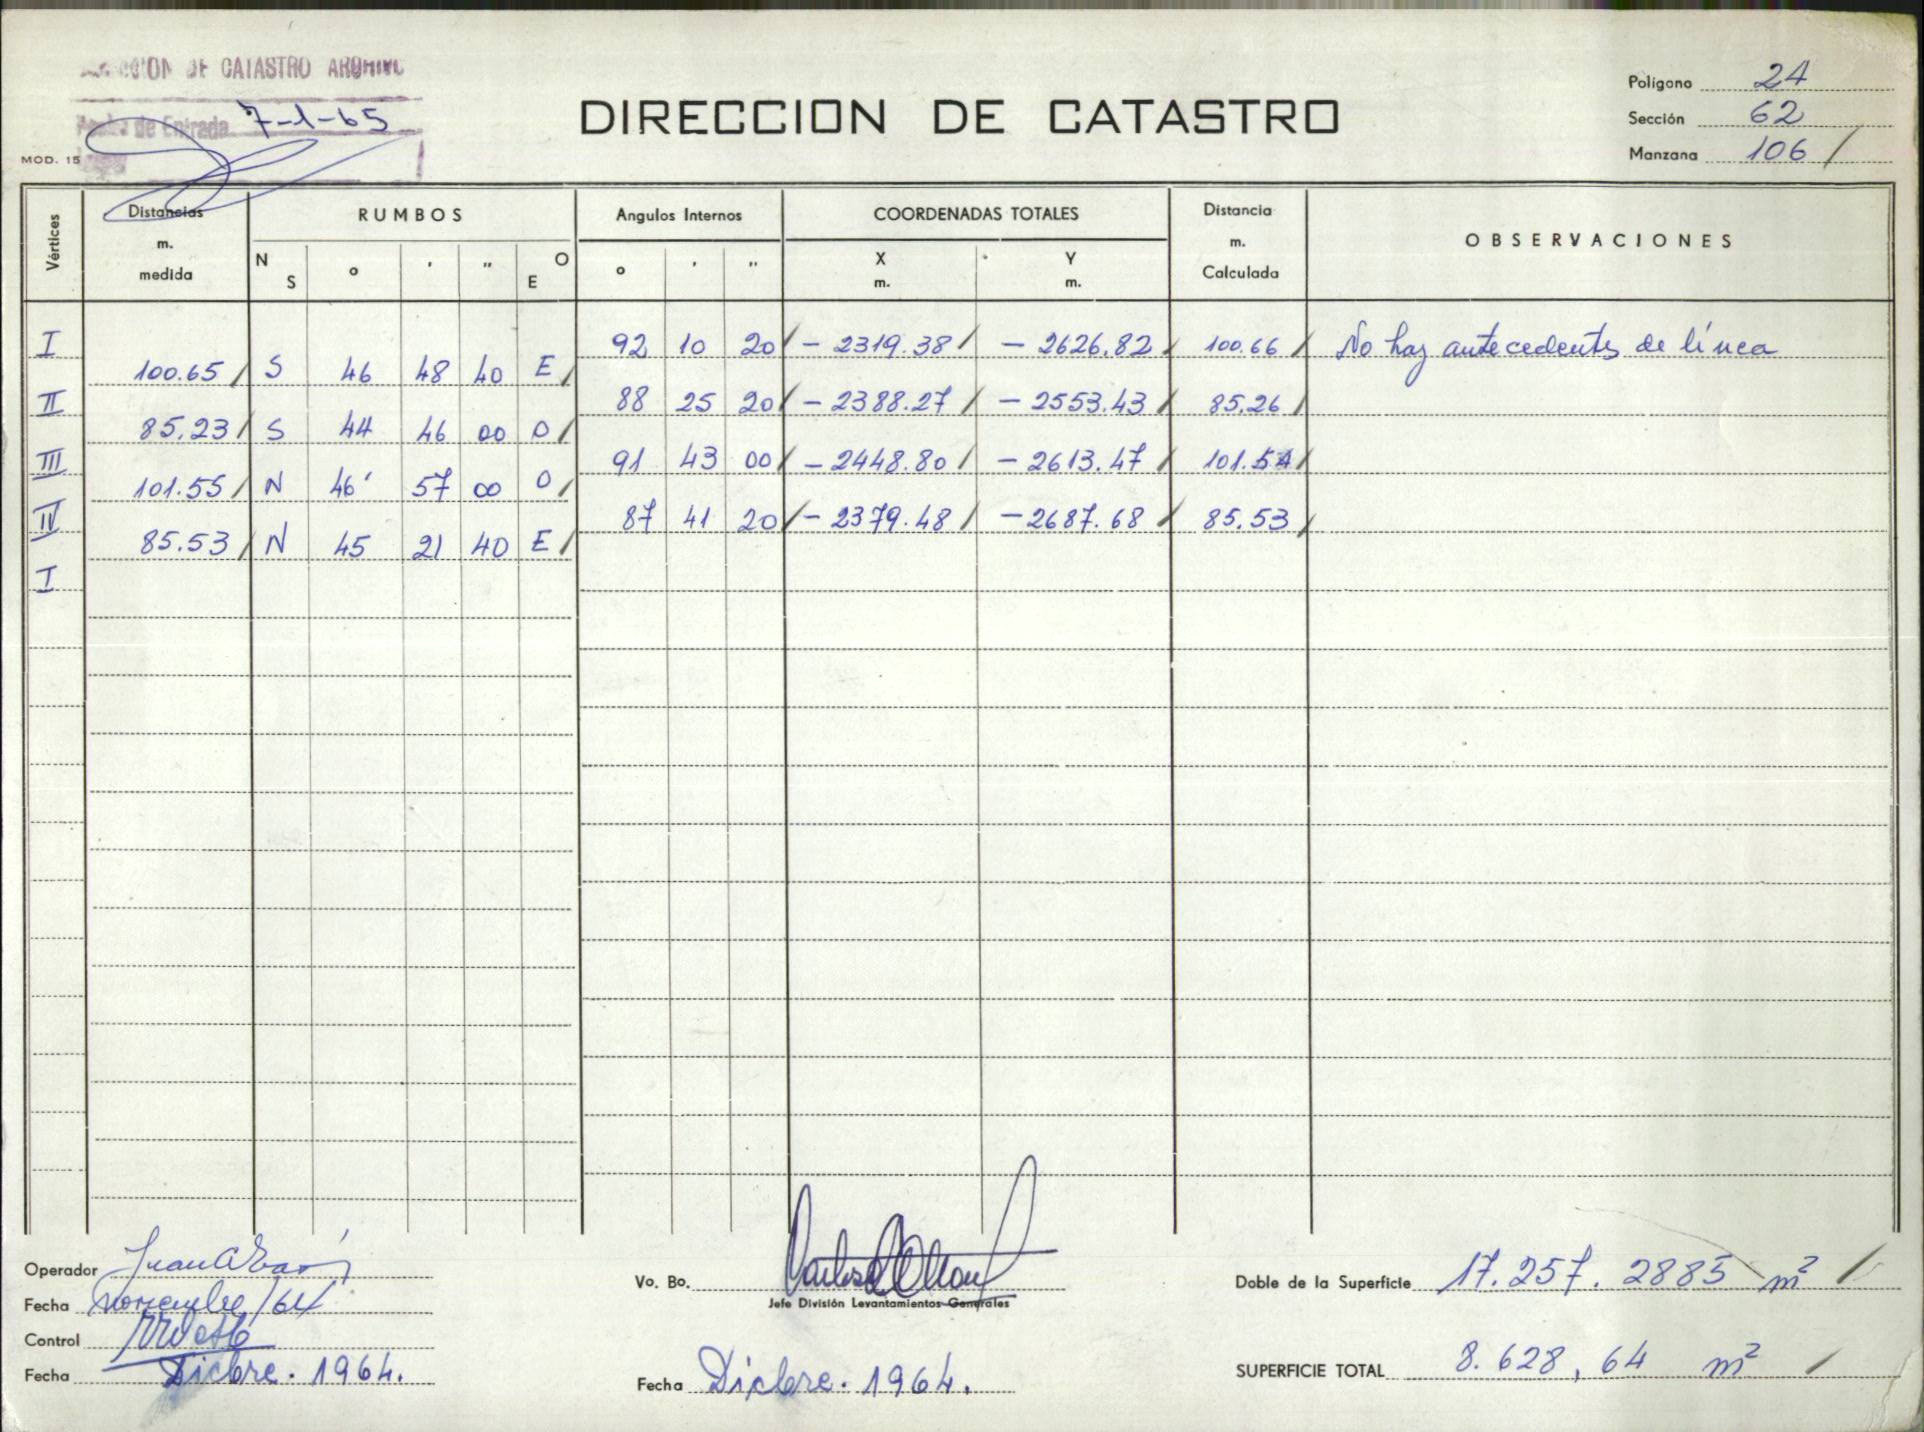 DE CATASTRO ARCHIVO
de Entrada 7-1-65
MOD. 15
DIRECCION DE CATASTRO
Polígono 24
Sección 62
Manzana 106 /
Vértices Distancias m. medida RUMBOS N S ° ' " O E Angulos Internos ° ' " COORDENADAS TOTALES X m. Y m. Distancia m. Calculada OBSERVACIONES
I 92 10 20 / - 2319.38 / - 2626.82 / 100.66 / No hay antecedentes de línea
100.65 / S 46 48 40 E /
II 88 25 20 / - 2388.27 / - 2553.43 / 85.26 /
85.23 / S 44 46 00 O /
III 91 43 00 / - 2448.80 / - 2613.47 / 101.54 /
101.55 / N 46' 57 00 O /
IV 87 41 20 / - 2379.48 / - 2687.68 / 85.53 /
85.53 / N 45 21 40 E /
I
Operador
Fecha noviembre/64
Control
Fecha Dicbre. 1964.
Vo. Bo.
Jefe División Levantamientos Generales
Fecha Dicbre. 1964.
Doble de la Superficie 17.257.2885 m² /
SUPERFICIE TOTAL 8.628,64 m² /